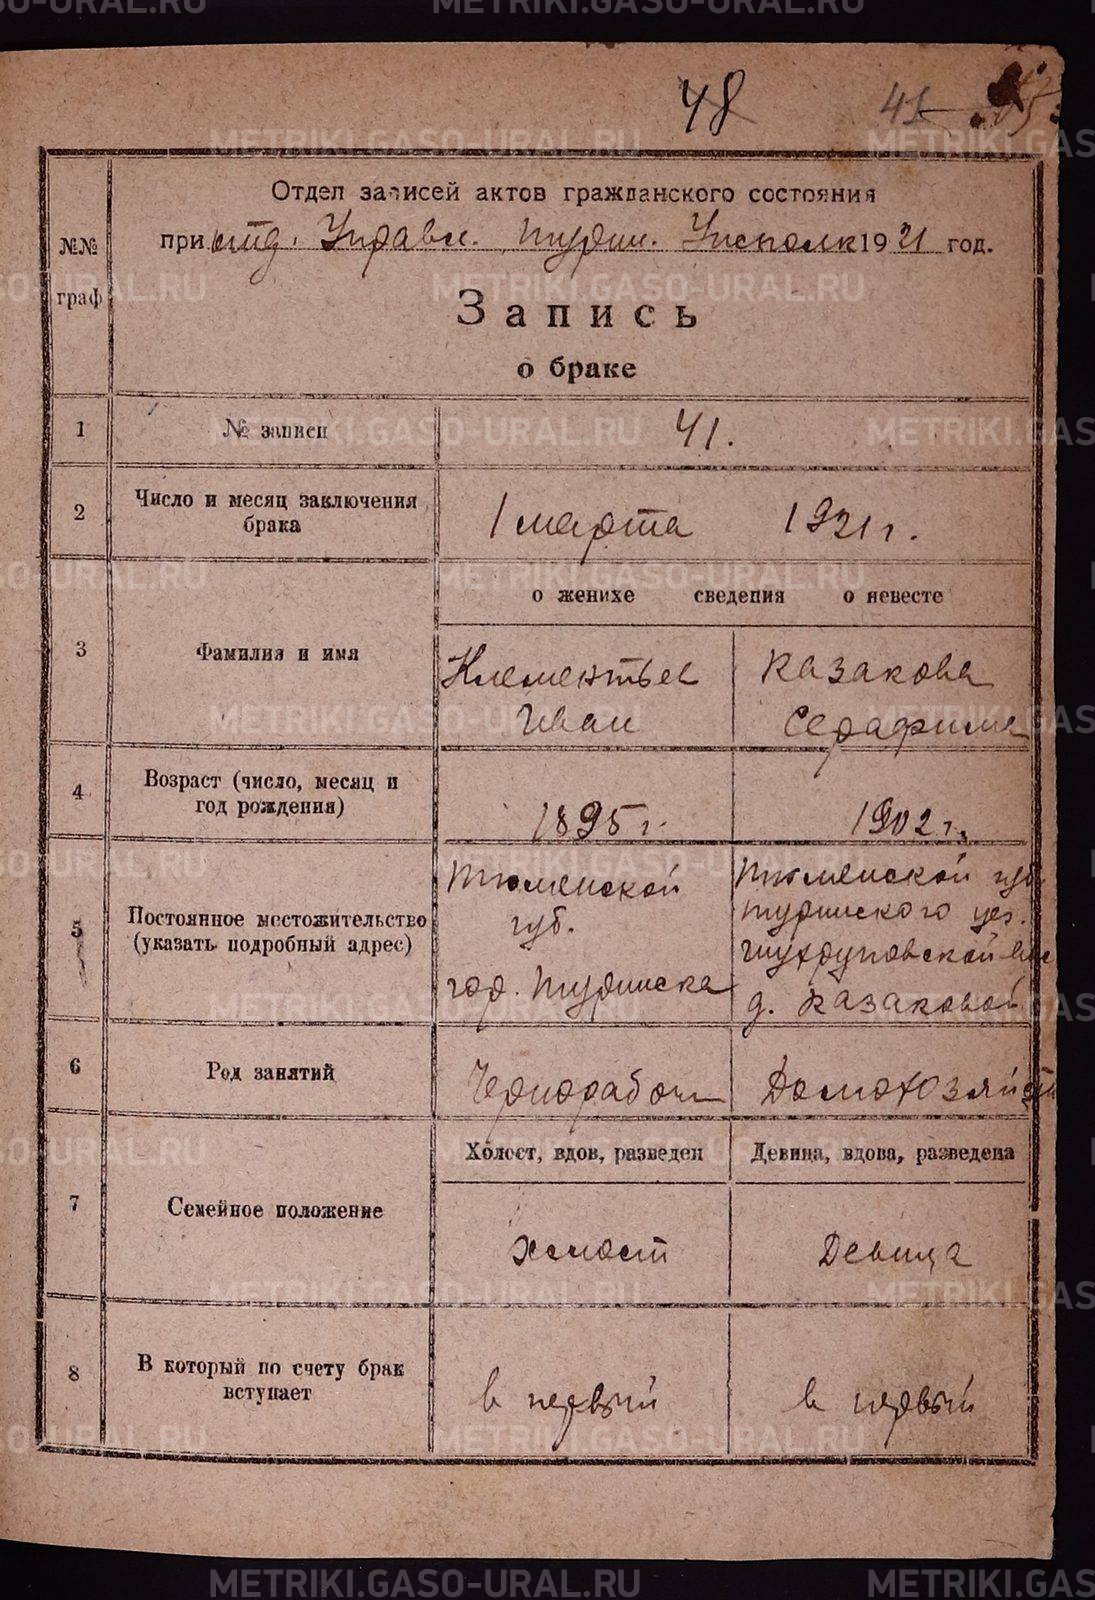 METRIKI.GASO-URAL.RU
48
41
Отдел записей актов гражданского состояния
при отд. Управл. Турин. Исполк 1921 год.
№№ граф
Запись
о браке
1 № записи 41.
2 Число и месяц заключения брака 1 марта 1921 г.
о женихе сведения о невесте
3 Фамилия и имя
Клементьев Казакова
Иван Серафима
4 Возраст (число, месяц и год рождения) 1895 г. 1902 г.
5 Постоянное местожительство (указать подробный адрес)
Тюменской Тюменской губ
губ. Туринского уез.
гор. Туринска Шухруповской вол
д. Казаковой
6 Род занятий Чернорабоч Домохозяйст
Холост, вдов, разведен Девица, вдова, разведена
7 Семейное положение холост Девица
8 В который по счету брак вступает в первый в первый